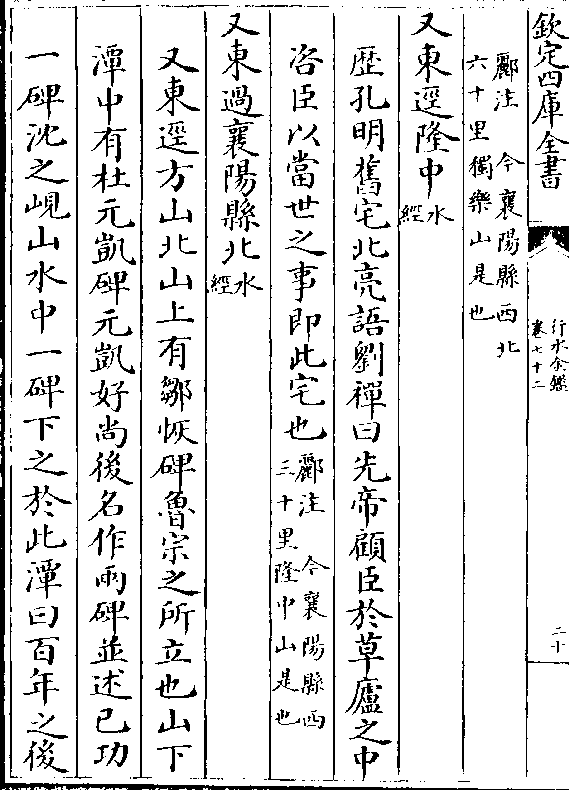 欽定四庫全書
行水金鑑
卷七十二
二十
酈注　今襄陽縣西北
六十里獨樂山是也
又東逕隆中水經
歴孔明舊宅北亮語劉禪曰先帝顧臣於草廬之中
咨臣以當世之事即此宅也酈注　今襄陽縣西三十里隆中山是也
又東過襄陽縣北水經
又東逕方山北山上有鄒恢碑魯宗之所立也山下
潭中有杜元凱碑元凱好尚後名作兩碑並述已功
一碑沈之峴山水中一碑下之於此潭曰百年之後